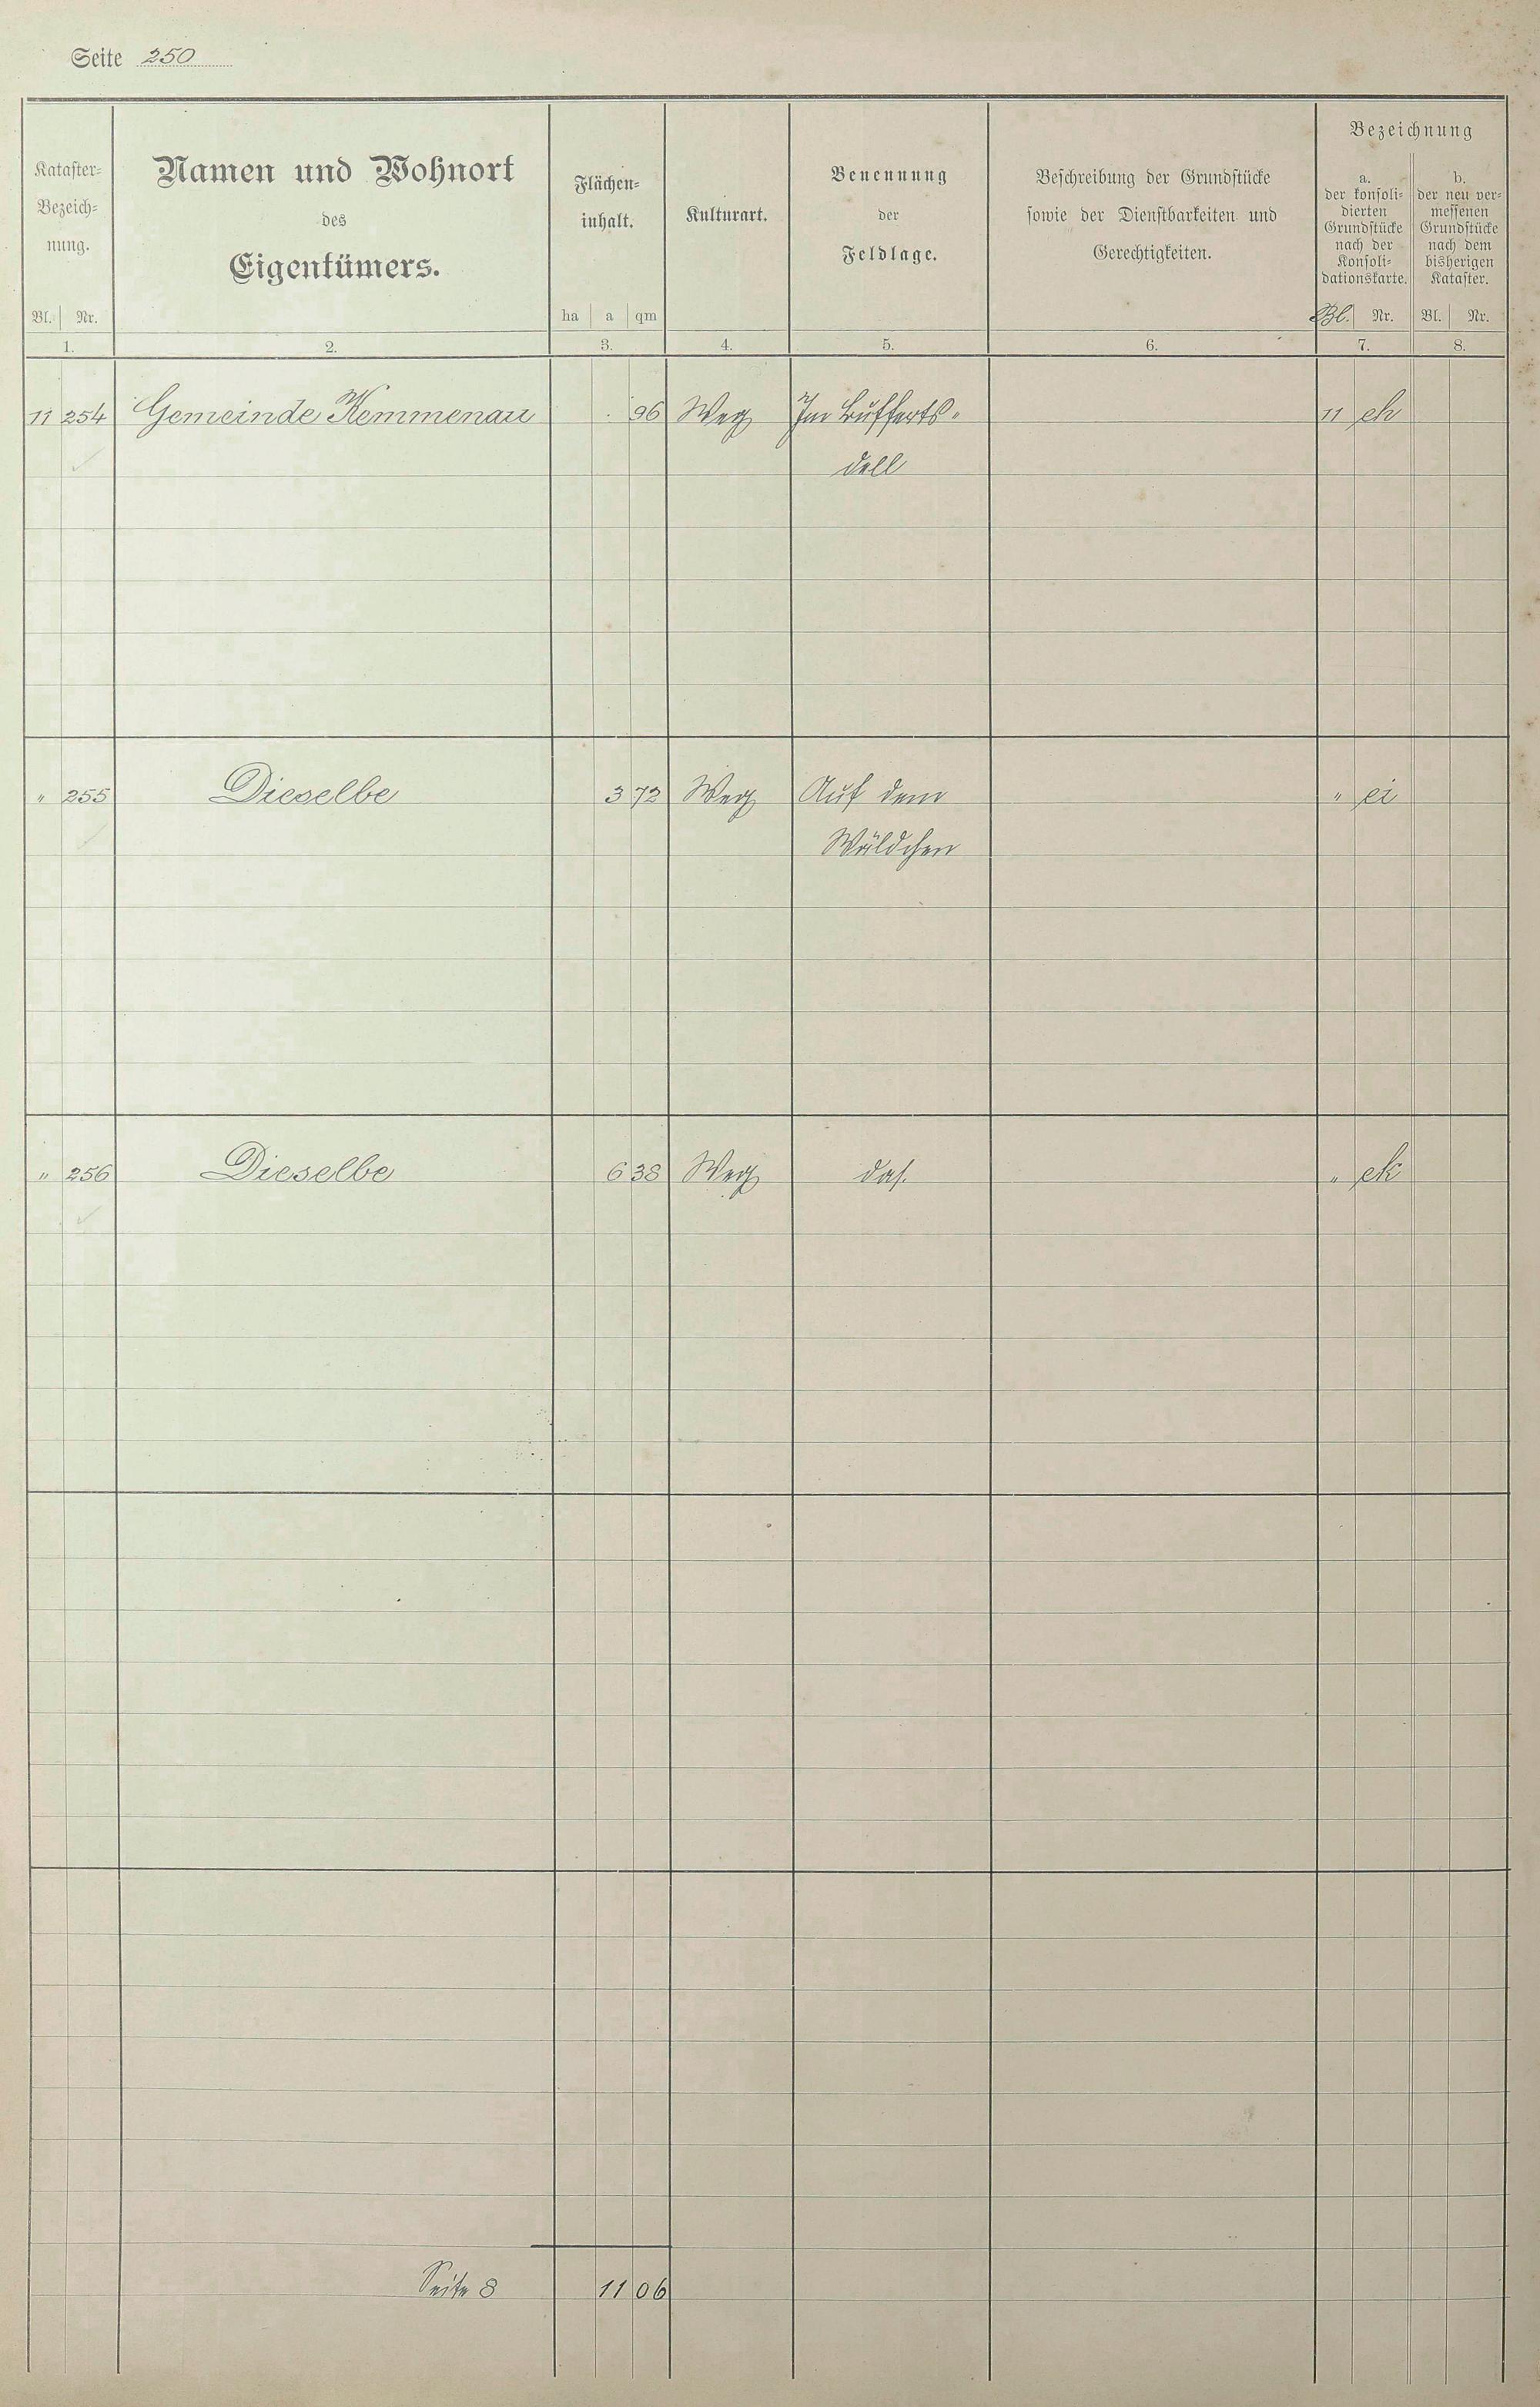 Seite 250
Kataster-
Bezeich-
nung.
Bl. Nr.
1.
Namen und Wohnort
des
Eigentümers.
2.
Flächen-
inhalt.
ha a qm
3.
Kulturart.
4.
Benennung
der
Feldlage.
5.
Beschreibung der Grundstücke
sowie der Dienstbarkeiten und
Gerechtigkeiten.
6.
Bezeichnung
a.
der konsoli-
dierten
Grundstücke
nach der
Konsoli-
dationskarte.
Bl. Nr.
7.
b.
der neu ver-
messenen
Grundstücke
nach dem
bisherigen
Kataster.
Bl. Nr.
8.
11 254 Gemeinde Kemmenau . 96 Weg Im Bufferts- 11 eh
dell
" 255 Dieselbe 3 72 Weg Auf dem " ei
Wäldchen
" 256 Dieselbe 6 38 Weg das. " ek
Seite 8 11 06